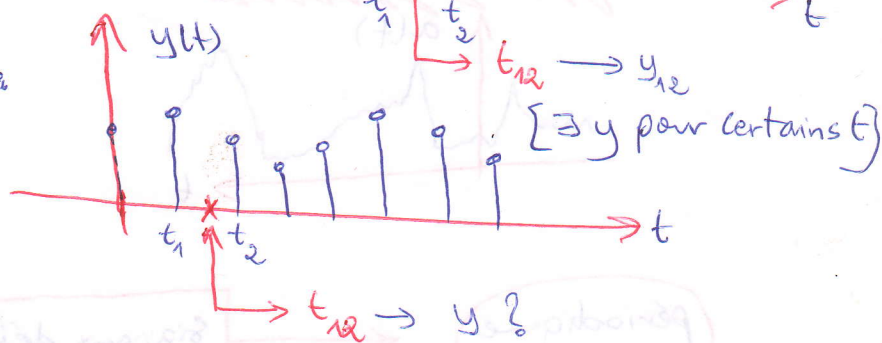 t₁ t₂ t
y(t) t₁₂ → y₁₂
[∃ y pour certains t]
t₁ t₂ t
t₁₂ → y ?